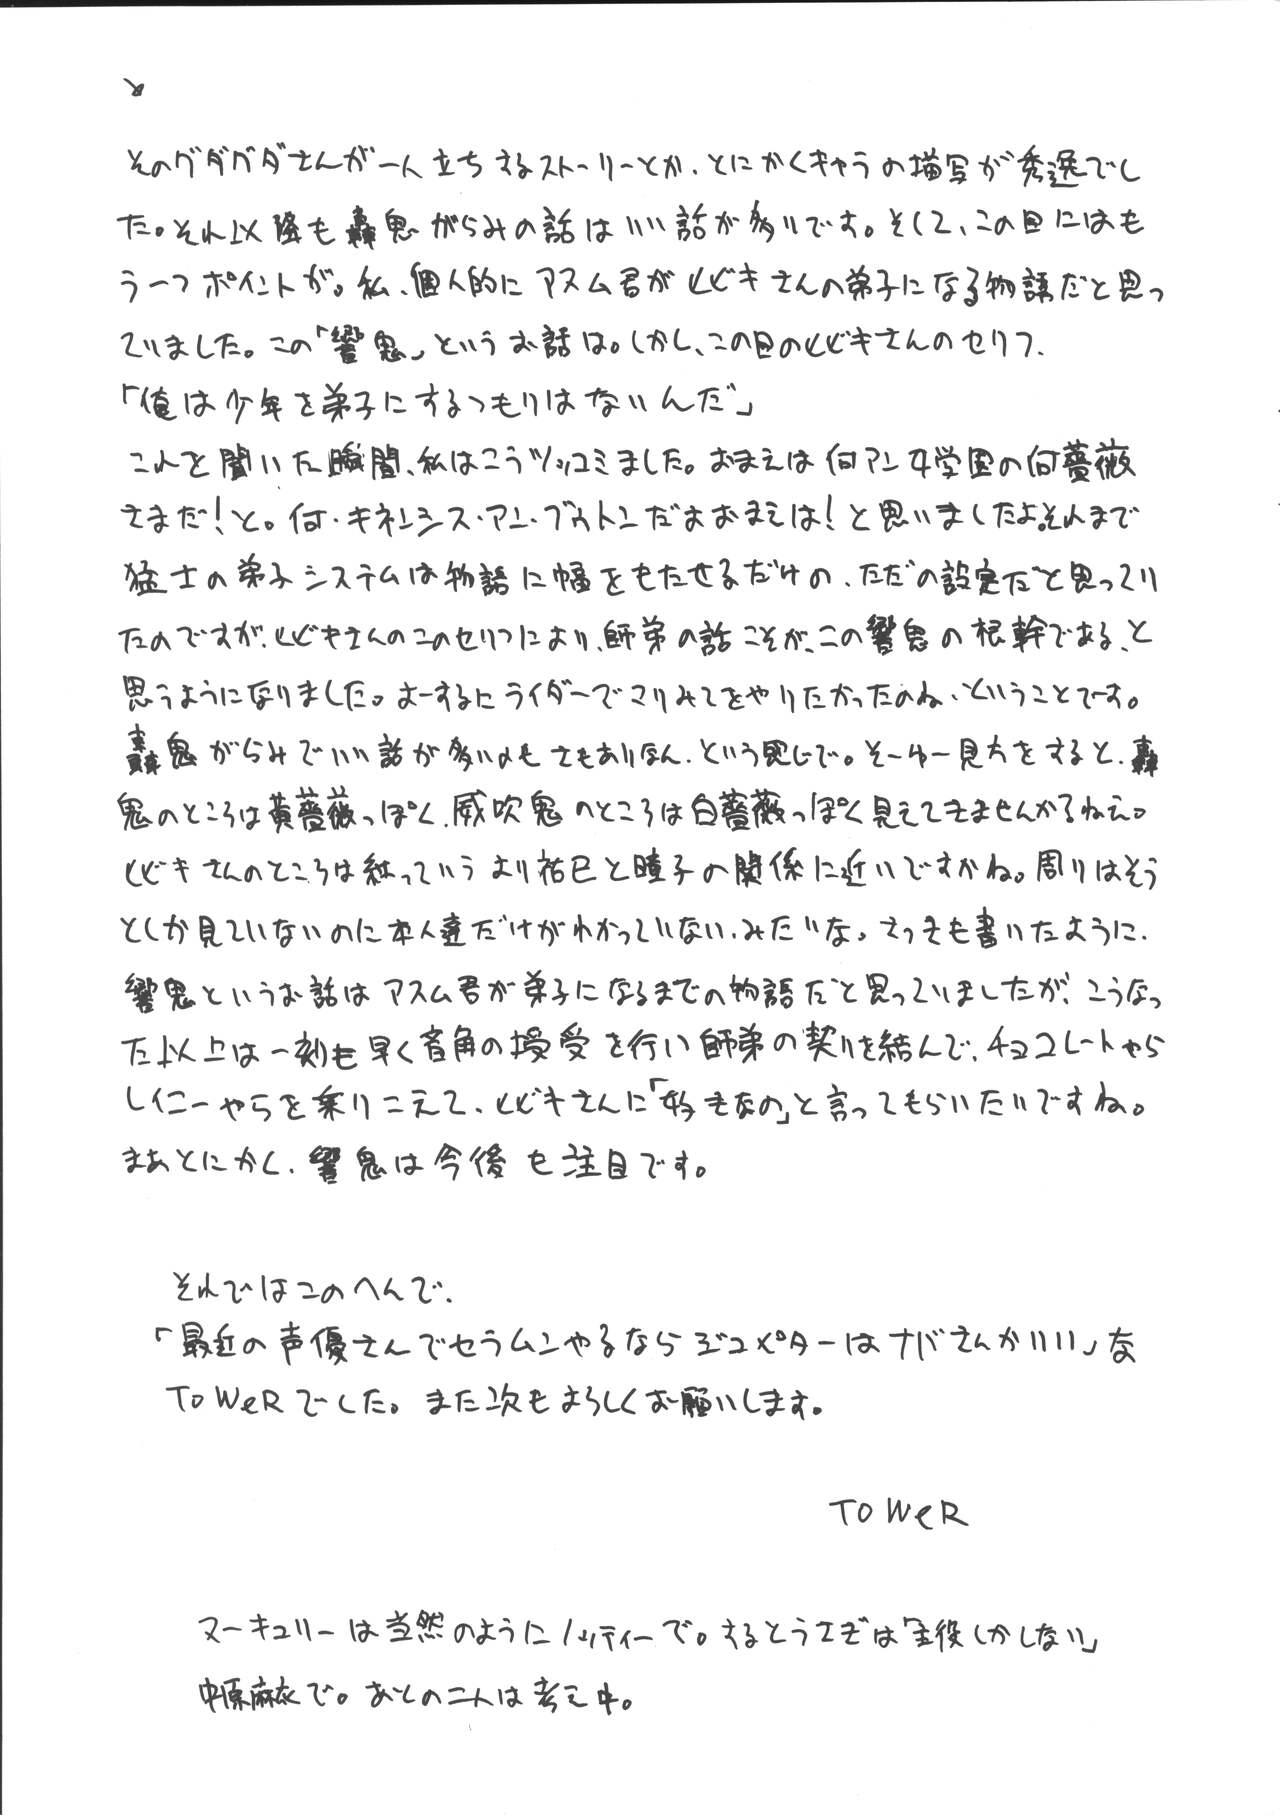 そのグダグダさんが一人立ちするストーリーとか、とにかくキャラの描写が秀逸でし
た。それ以降も轟鬼がらみの話はいい話が多いです。そして、この回にはも
う一つポイントが。私、個人的にアスム君がヒビキさんの弟子になる物語だと思っ
ていました。この「響鬼」というお話は。しかし、この回のヒビキさんのセリフ、
「俺は少年を弟子にするつもりはないんだ」
これを聞いた瞬間、私はこうツッコミました。おまえは何アン女学園の何薔薇
さまだ！と。何・キネンシス・アン・ブゥトンだよおまえは！と思いましたよ。それまで
猛士の弟子システムは物語に幅をもたせるだけの、ただの設定だと思ってい
たのですが、ヒビキさんのこのセリフにより、師弟の話こそが、この響鬼の根幹である、と
思うようになりました。よーするにライダーでマリみてをやりたかったのね、ということです。
轟鬼がらみでいい話が多いのもさもありなん、という感じで。そーゆー見方をすると、轟
鬼のところは黄薔薇っぽく、威吹鬼のところは白薔薇っぽく見えてきませんかるねえ。
ヒビキさんのところは紅っていうより祐巳と瞳子の関係に近いですかね。周りはそう
としか見ていないのに本人達だけがわかっていない、みたいな。さっきも書いたように、
響鬼というお話はアスム君が弟子になるまでの物語だと思っていましたが、こうなっ
た以上は一刻も早く音角の授受を行い師弟の契りを結んで、チョコレートやら
レイニーやらを乗りこえて、ヒビキさんに「好きなの」と言ってもらいたいですね。
まあとにかく、響鬼は今後も注目です。
それではこのへんで、
「最近の声優さんでセラムンやるならジュピターはナバさんがいい」な
TOWeRでした。また次もよろしくお願いします。
TOWeR
マーキュリーは当然のようにノッティーで。するとうさぎは「主役しかしない」
中原麻衣で。あとの二人は考え中。